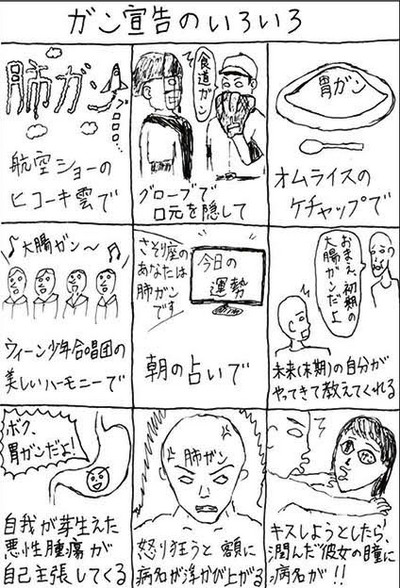 ガン宣告のいろいろ
肺ガン
ブロロ…
航空ショーの
ヒコーキ雲で
食道ガン
グローブで
口元を隠して
胃ガン
オムライスの
ケチャップで
♪大腸ガン〜♪
ウィーン少年合唱団の
美しいハーモニーで
さそり座の
あなたは
肺ガン
です
今日の
運勢
朝の占いで
おまえ、初期の
大腸ガンだよ
未来(末期)の自分が
やってきて教えてくれる
ボク、
胃ガンだよ!
自我が芽生えた
悪性腫瘍が
自己主張してくる
肺ガン
怒り狂うと額に
病名が浮かび上がる
キスしようとしたら、
潤んだ彼女の瞳に
病名が!!